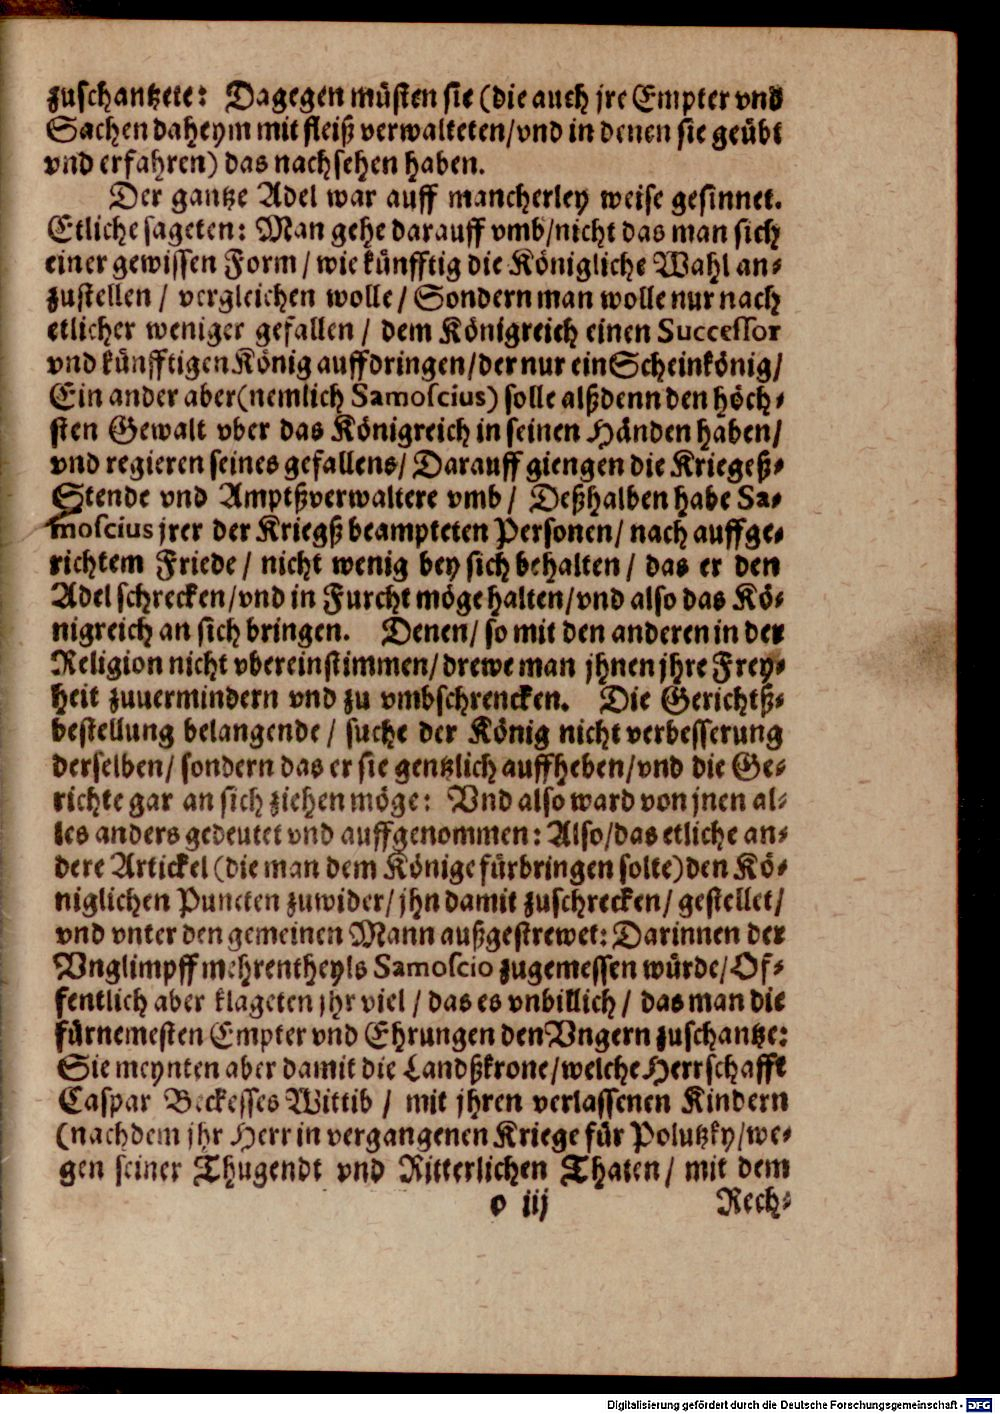 zuschantzete: Dagegen müsten sie (die auch jre Empter vnd
Sachen daheym mit fleiß verwalteten/vnd in denen sie geübt
vnd erfahren) das nachsehen haben.
Der gantze Adel war auff mancherley weise gesinnet.
Etliche sageten: Man gehe darauff vmb/nicht das man sich
einer gewissen Form/ wie künfftig die Königliche Wahl an-
zustellen/ vergleichen wolle/ Sondern man wolle nur nach
etlicher weniger gefallen/ dem Königreich einen Successor
vnd künfftigen König auffdringen/der nur ein Scheinkönig/
Ein ander aber(nemlich Samoscius) solle alßdenn den höch-
sten Gewalt vber das Königreich in seinen Händen haben/
vnd regieren seines gefallens/ Darauff giengen die Kriegeß-
Stende vnd Amptßverwaltere vmb/ Deßhalben habe Sa-
moscius jrer der Kriegß beampteten Personen/ nach auffge-
richtem Friede/ nicht wenig bey sich behalten/ das er den
Adel schrecken/vnd in Furcht möge halten/vnd also das Kö-
nigreich an sich bringen. Denen/ so mit den anderen in der
Religion nicht vbereinstimmen/drewe man jhnen jhre Frey-
heit zuuermindern vnd zu vmbschrencken. Die Gerichtß-
bestellung belangende/ suche der König nicht verbesserung
derselben/ sondern das er sie gentzlich auffheben/vnd die Ge-
richte gar an sich ziehen möge: Vnd also ward von jnen al-
les anders gedeutet vnd auffgenommen: Also/das etliche an-
dere Artickel (die man dem Könige fürbringen solte)den Kö-
niglichen Puncten zuwider/jhn damit zuschrecken/ gestellet/
vnd vnter den gemeinen Mann außgestrewet: Darinnen der
Vnglimpff mehrentheyls Samoscio zugemessen würde/Of-
fentlich aber klageten jhr viel/ das es vnbillich/ das man die
fürnemesten Empter vnd Ehrungen den Vngern zuschantze:
Sie meynten aber damit die Landßkrone/welche Herrschafft
Caspar Beckesses Wittib/ mit jhren verlassenen Kindern
(nachdem jhr Herr in vergangenen Kriege für Polutzky/we-
gen seiner Thugendt vnd Ritterlichen Thaten/ mit dem
o iij Rech-
Digitalisierung gefördert durch die Deutsche Forschungsgemeinschaft - DFG